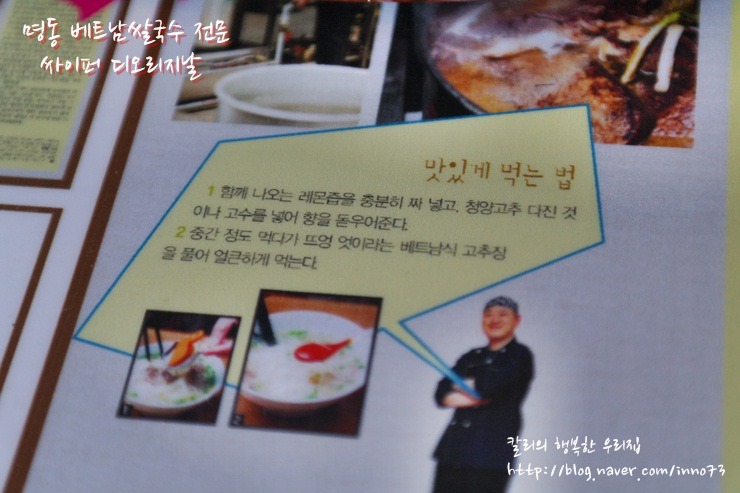 명동 베트남쌀국수 전문
싸이퍼 디오리지날
맛있게 먹는 법
1 함께 나오는 레몬즙을 충분히 짜 넣고, 청양고추 다진 것
이나 고수를 넣어 향을 돋우어준다.
2 중간 정도 먹다가 뜨엉 엇이라는 베트남식 고추장
을 풀어 얼큰하게 먹는다.
1
2
칼리의 행복한 우리집
http://blog.naver.com/inno73